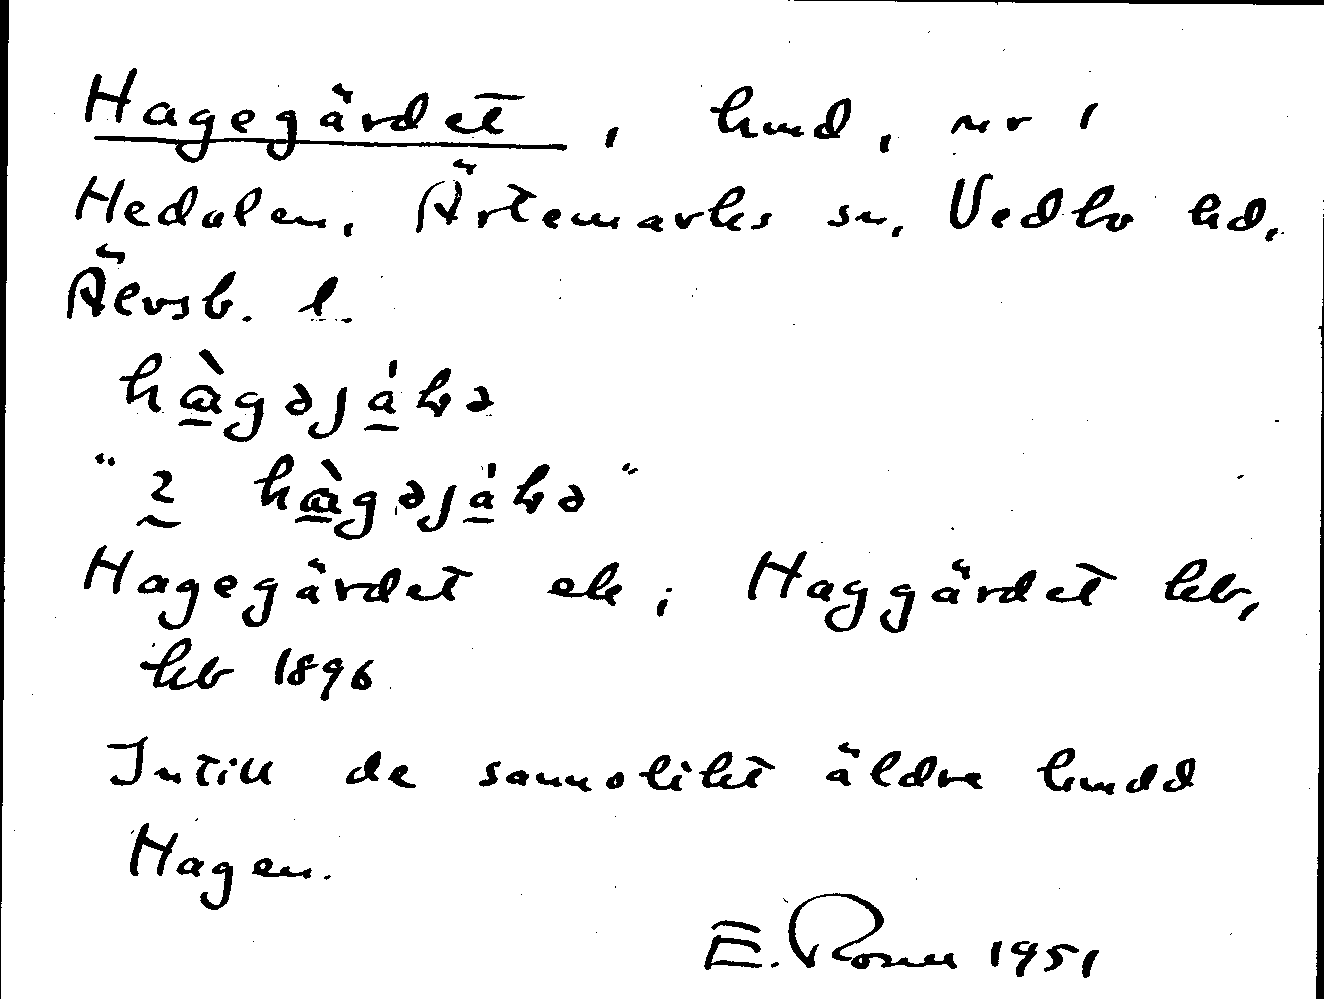 Hagegärdet, hmd, nr 1
Hedalen, Ärtemarks sn, Vedbo hd,
Älvsb. l.
hàgəjákə
" 2 hàgəjákə "
Hagegärdet ek; Haggärdet kb,
hb 1896
Intill de sannolikt äldre hmdd
Hagen.
E. 1951